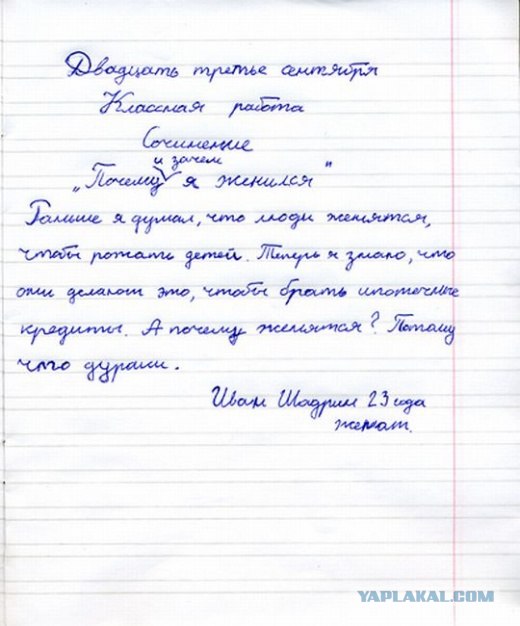 Двадцать третье сентября
Классная работа
Сочинение
и зачем
„Почему я женился"
Раньше я думал, что люди женятся,
чтобы рожать детей. Теперь я знаю, что
они делают это, чтобы брать ипотечные
кредиты. А почему женятся? Потому
что дураки.
Иван Шадрин 23 года
женат.
YAPLAKAL.COM